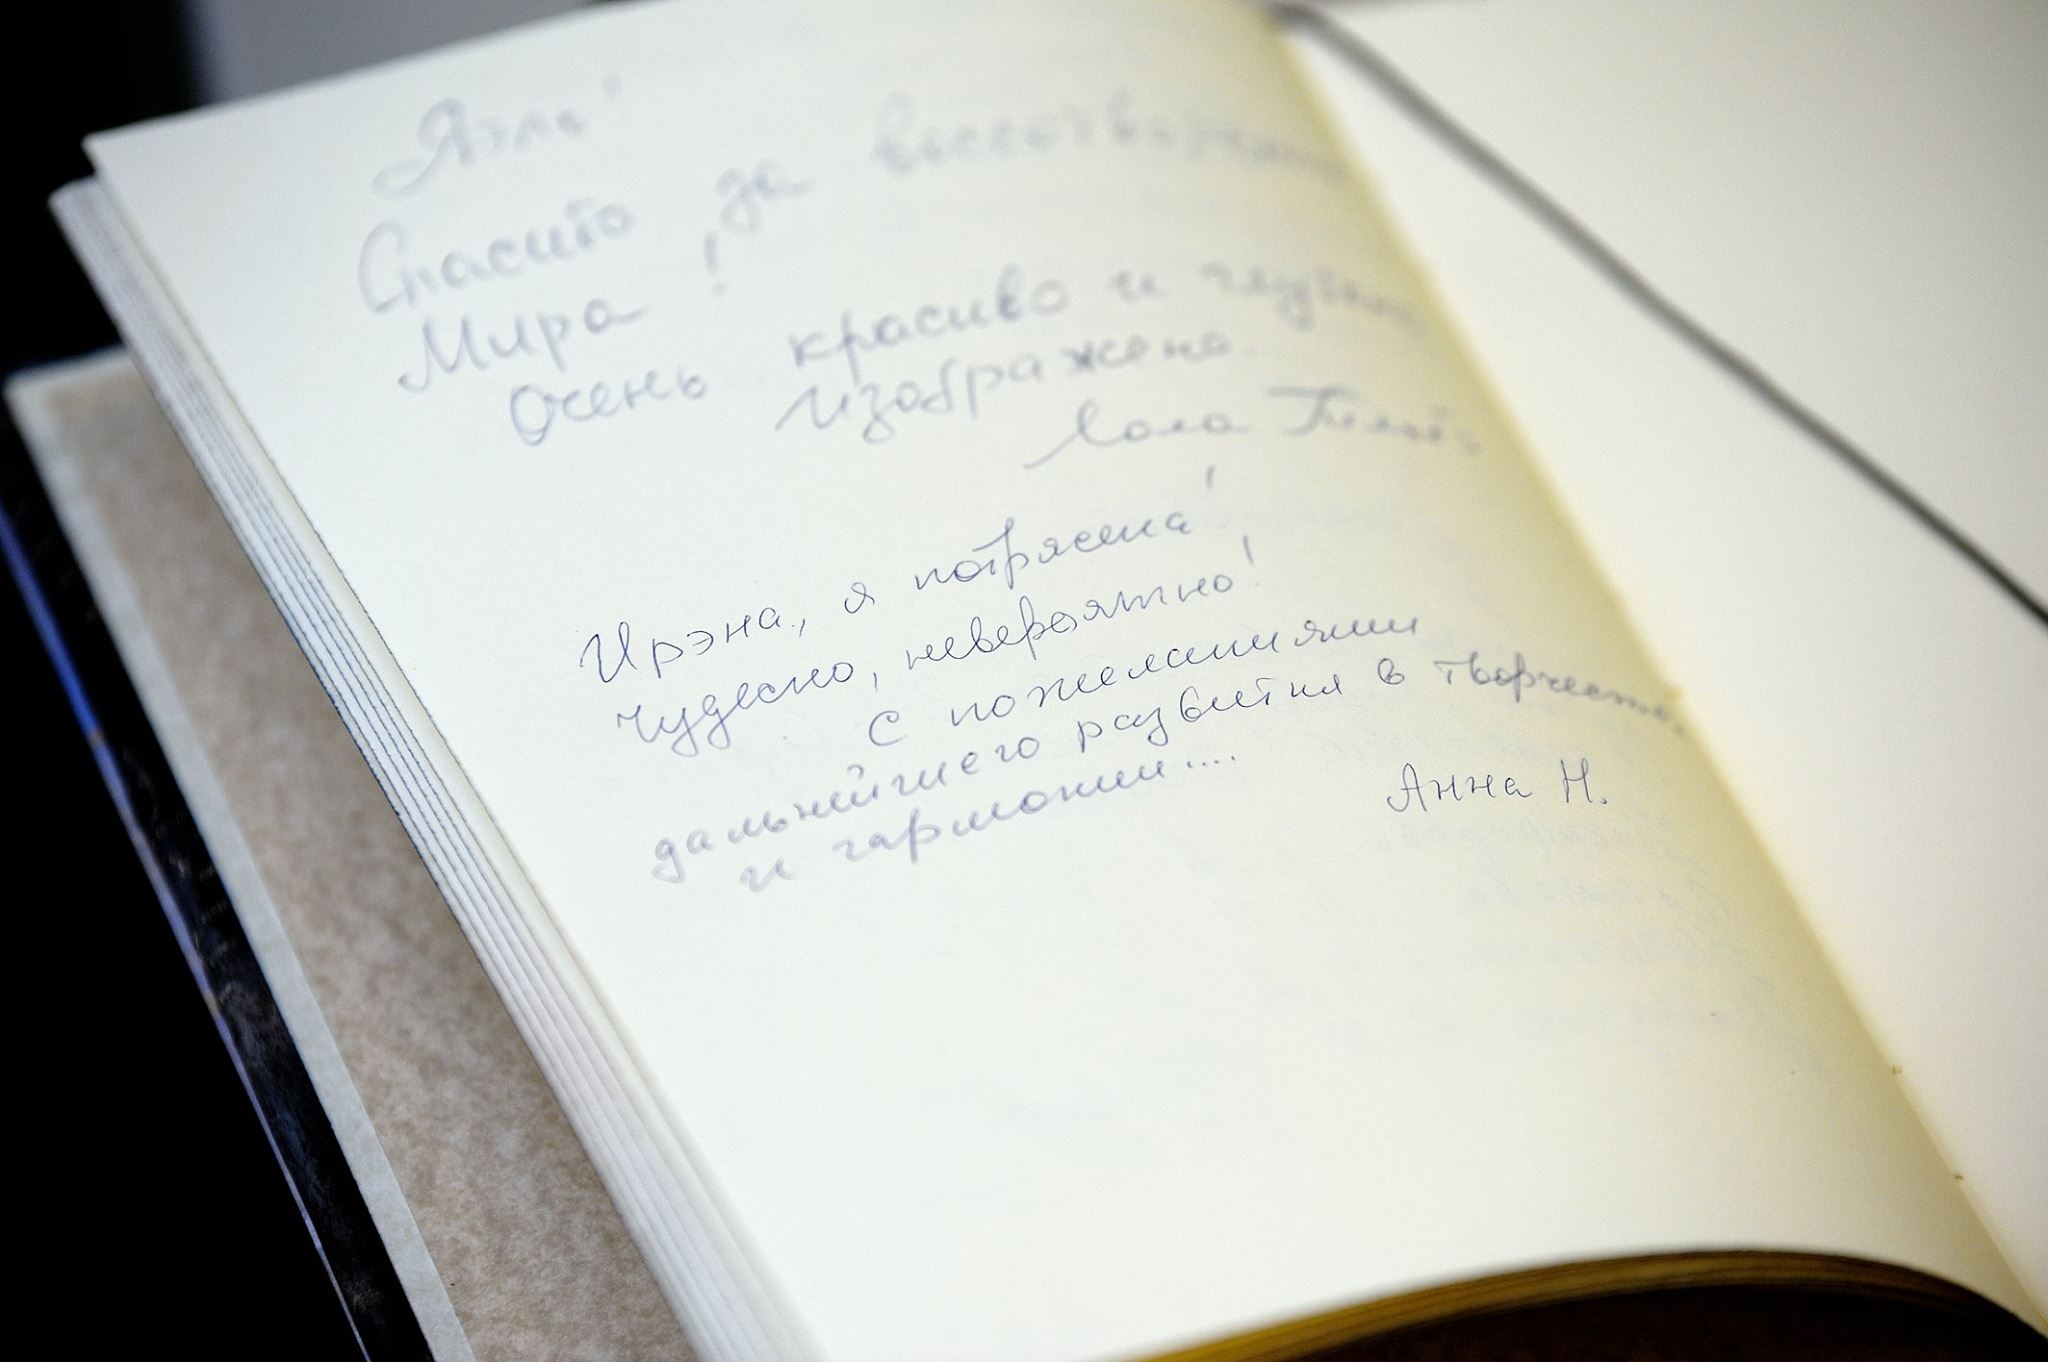 Яэль!
Спасибо за
Мира!
Очень красиво и
изображено.
Лола
Ирэна, я потрясена!
чудесно, невероятно!
с пожеланиями
дальнейшего развития в творчестве
и гармонии....
Анна Н.